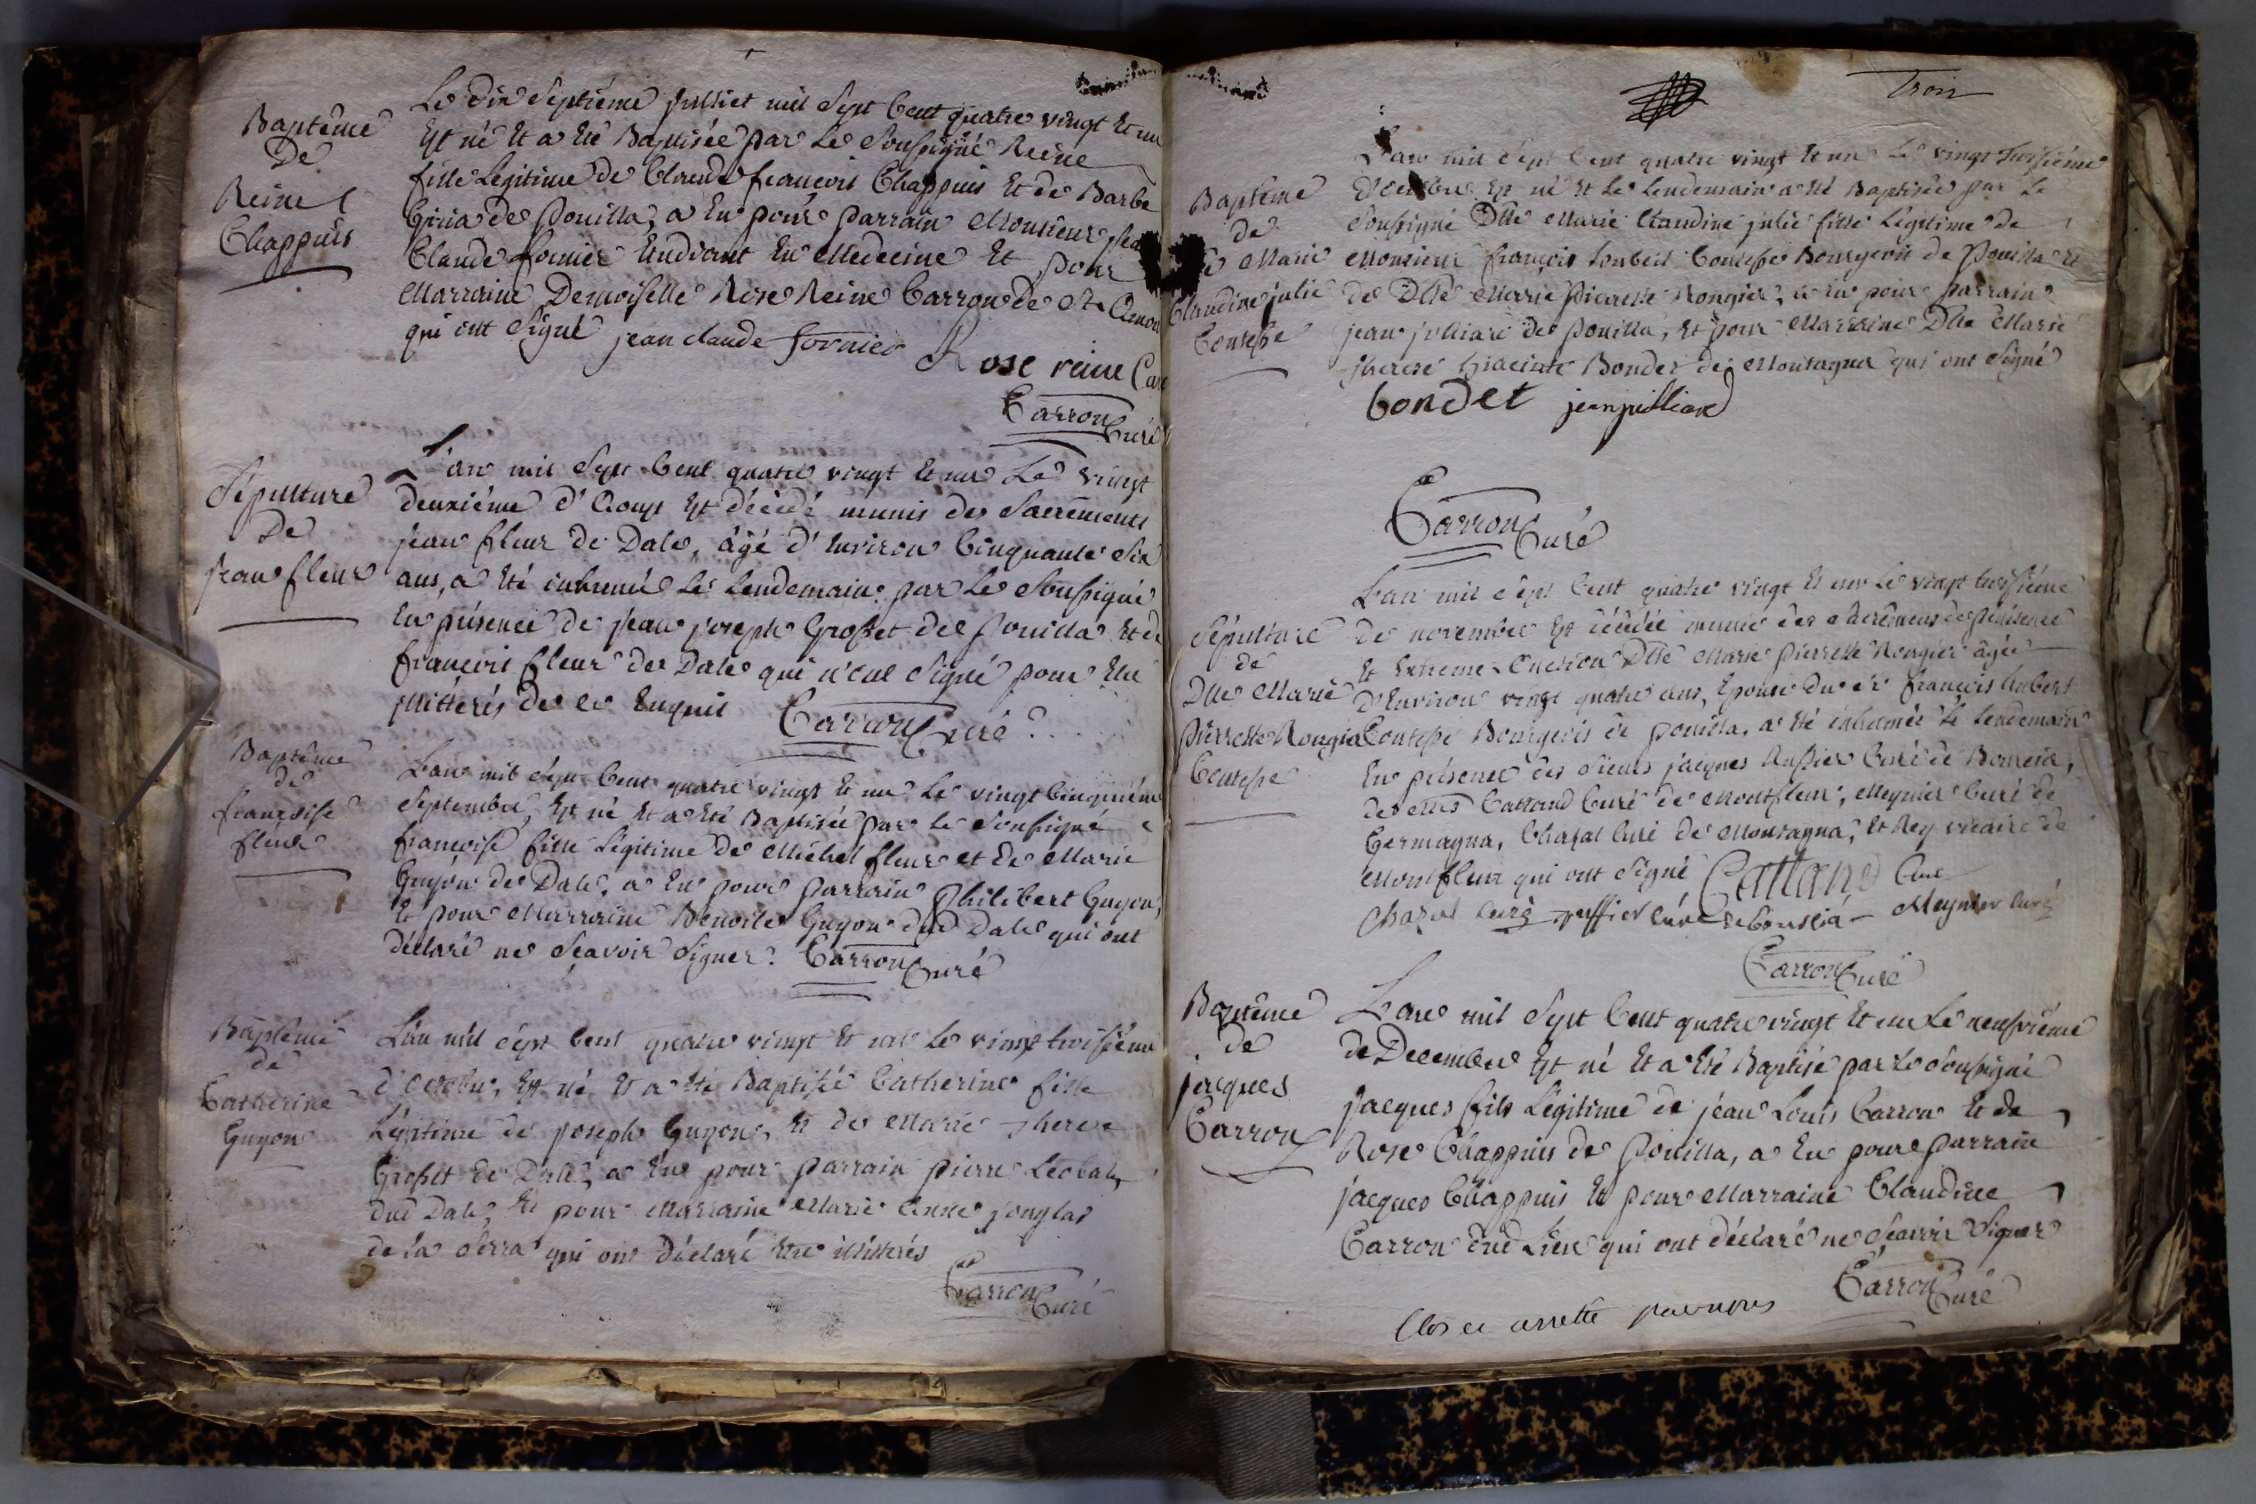 Baptême
De
Reine
Chappuis
Le dix Septiéme juilliet mil Sept Cent quatre vingt Et un
Est né Et a Eté Baptisée par Le Soussigné Reine
fille Légitime de Claude françois Chappuis Et de Barbe
de Pouilla, a Eu pour parrain Monsieur jean
Claude fornier Etudiant En Medecine Et pour
Marraine Demoiselle Rose Reine Carron de St
qui ont Signé jean claude fornier
Rose reine Car
Carron Curé
Sépulture
De
jean fleur
L'an mil Sept Cent quatre vingt Et un Le vingt
deuxiéme d'Aoust Est décédé munis des Sacrements
jean fleur de Dale, âgé d'Environ Cinquante Six
ans, a Eté inhumé Le Lendemain par Le Soussigné
En présence de jean joseph Grosset de Pouilla Et de
françois fleur de Dale qui n'ont Signé pour Etre
illitérés de ce Enquis Carron Curé
Baptême
de
françoise
fleur
L'an mil Sept Cent quatre vingt Et un Le vingt Cinquiéme
Septembre, Est né Et a Eté Baptisée par Le Soussigné
françoise fille Légitime de Michel fleur et de Marie
Guyon de Dale, a Eu pour parrain Philibert Guyon,
Et pour Marraine Benoite Guyon dud Dale qui ont
déclaré ne Sçavoir Signer. Carron Curé
Baptême
de
Catherine
Guyon
L'an mil Sept Cent quatre vingt Et un Le vingt troisiéme
d'octobre, Est né Et a Eté Baptisé Catherine fille
Légitime de joseph Guyon, Et de Marie therese
Grosset de Dale, a Eu pour parrain pierre
dud Dale, Et pour Marraine Marie Anne
de la Serra qui ont Déclaré Etre illitérés
Carron Curé
Trois
Baptême
de
Marie
Claudine julie
Contesse
L'an mil Sept Cent quatre vingt Et un Le vingt troisiéme
d'octobre Est né Et Le Lendemain a Eté Baptisée par Le
Soussigné Dlle Marie Claudine julie fille Légitime de
Monsieur françois Contesse Bourgeois de Pouilla Et
de Dlle Marie Pierrette Rongier, a Eu pour parrain
jean julliard de Pouilla, Et pour Marraine Dlle Marie
therese hiacinte Bondet de Montagna qui ont Signé
bondet jean juilliard
Carron Curé
Sépulture
de
Dlle Marie
Pierrette Rongier
Contesse
L'an mil Sept Cent quatre vingt Et un Le vingt troisiéme
de novembre Est décédée munie des Sacremens de Pénitence
Et Extreme Onction Dlle Marie Pierrette Rongier âgée
D'Environ vingt quatre ans, Epouse du Sr françois
Contesse Bourgeois de Pouilla, a Eté inhumée Le Lendemain
En présence des Sieurs jacques Curé de
de Mrs Cattand Curé de Montfleur, Meynier Curé de
Germagna, Chazal Curé de Montagna, Et Rey vicaire de
Montfleur qui ont Signé Cattand Curé
Chazal Curé Curé Meynier Curé
Carron Curé
Baptême
de
jacques
Carron
L'an mil Sept Cent quatre vingt Et un Le neufviéme
de Decembre Est né Et a Eté Baptisé par Le Soussigné
jacques fils Légitime de jean Louis Carron Et de
Rose Chappuis de Pouilla, a Eu pour parrain
jacques Chappuis Et pour Marraine Claudine
Carron dud Lieu qui ont déclaré ne Sçavoir Signer
Carron Curé
Clos et arrette par nous